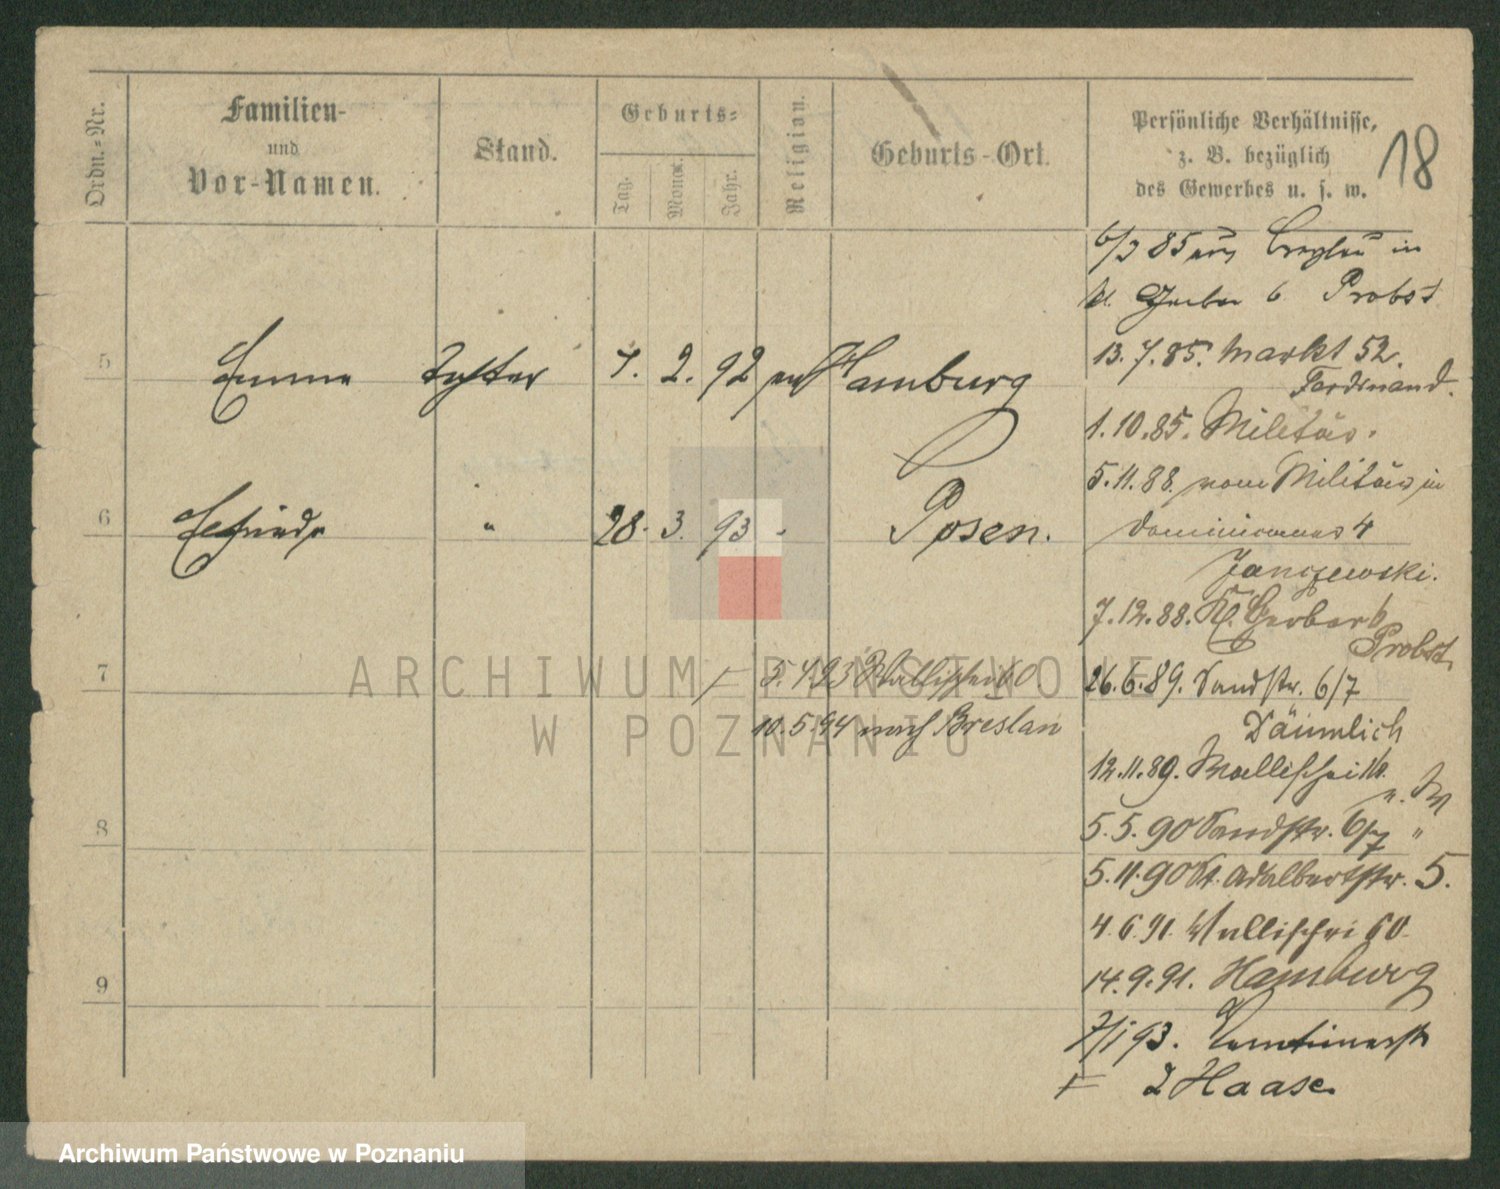 Ordn.-Nr.
Familien-
und
Vor-Namen.
Stand.
Geburts-
Tag.
Monat.
Jahr.
Religion.
Geburts-Ort.
Persönliche Verhältnisse,
z. B. bezüglich
des Gewerbes u. s. w.
18
6/3 85 aus Breslau in
kl. Gerber 6 Probst
13. 7. 85. Markt 52.
Ferdinand.
1. 10. 85. Militär.
5. 11. 88. vom Militär in
Dominicaner 4
Janczewski.
7. 12. 88. Kl. Gerber 6
Probst.
26. 6. 89. Sandstr. 6/7
Däumlich
12. 11. 89. Wallischei
5. 5. 90 Sandstr. 6/7 "
5. 11. 90 St. Adalbertstr. 5.
4. 6. 91. Wallischei 60
14. 9. 91. Hamburg
7/1 93.
2 Haase
5 Emma Tochter 7. 2. 92 ev Hamburg
6 Elfriede " 28. 3. 93 - Posen.
7 5. 4. 93 Wallischei 60
10. 5. 94 nach Breslau
8
9
ARCHIWUM PAŃSTWOWE
W POZNANIU
Archiwum Państwowe w Poznaniu